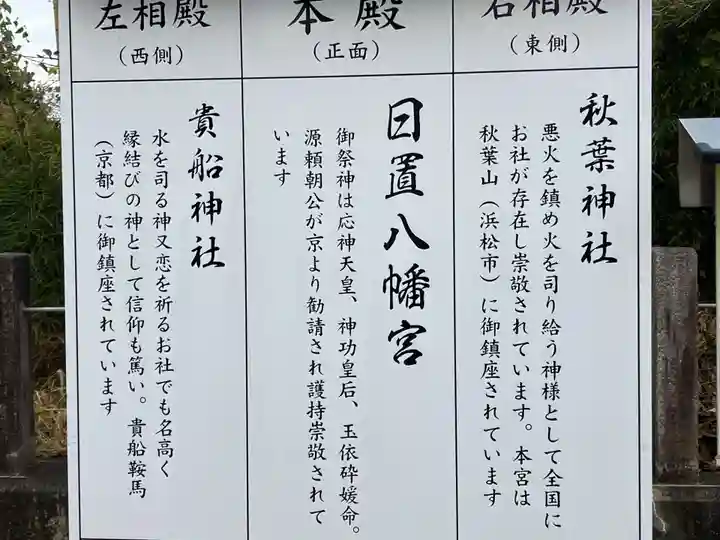 右相殿
(東側)
秋葉神社
悪火を鎮め火を司り給う神様として全国に
お社が存在し崇敬されています。本宮は
秋葉山(浜松市)に御鎮座されています
本殿
(正面)
日置八幡宮
御祭神は応神天皇、神功皇后、玉依砕媛命。
源頼朝公が京より勧請され護持崇敬されて
います
左相殿
(西側)
貴船神社
水を司る神又恋を祈るお社でも名高く
縁結びの神として信仰も篤い。貴船鞍馬
(京都)に御鎮座されています